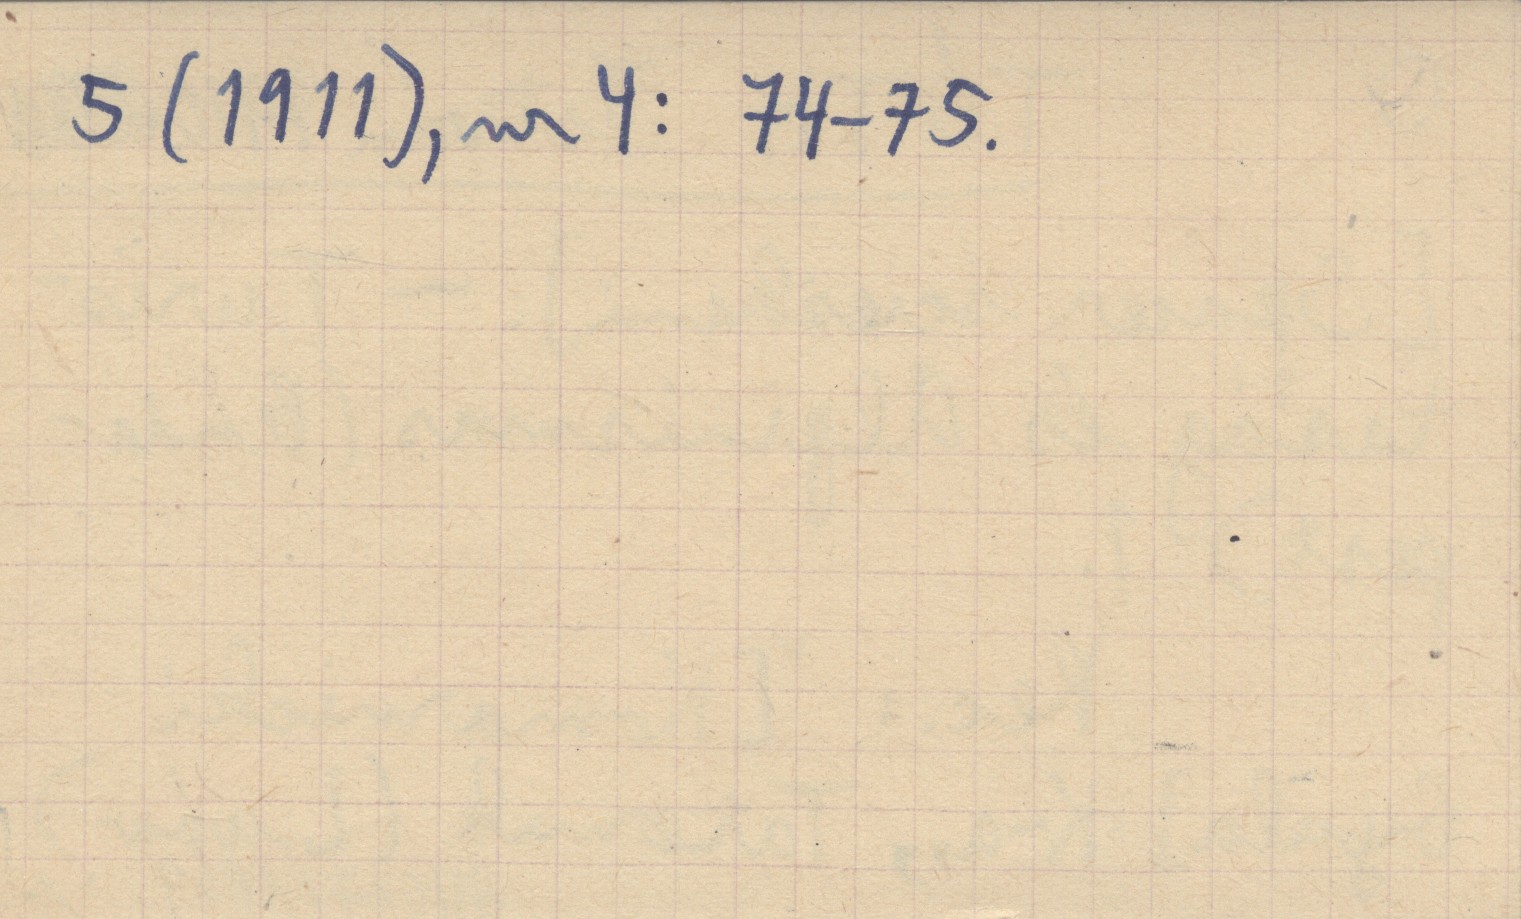 5 (1911), nr 4: 74-75.